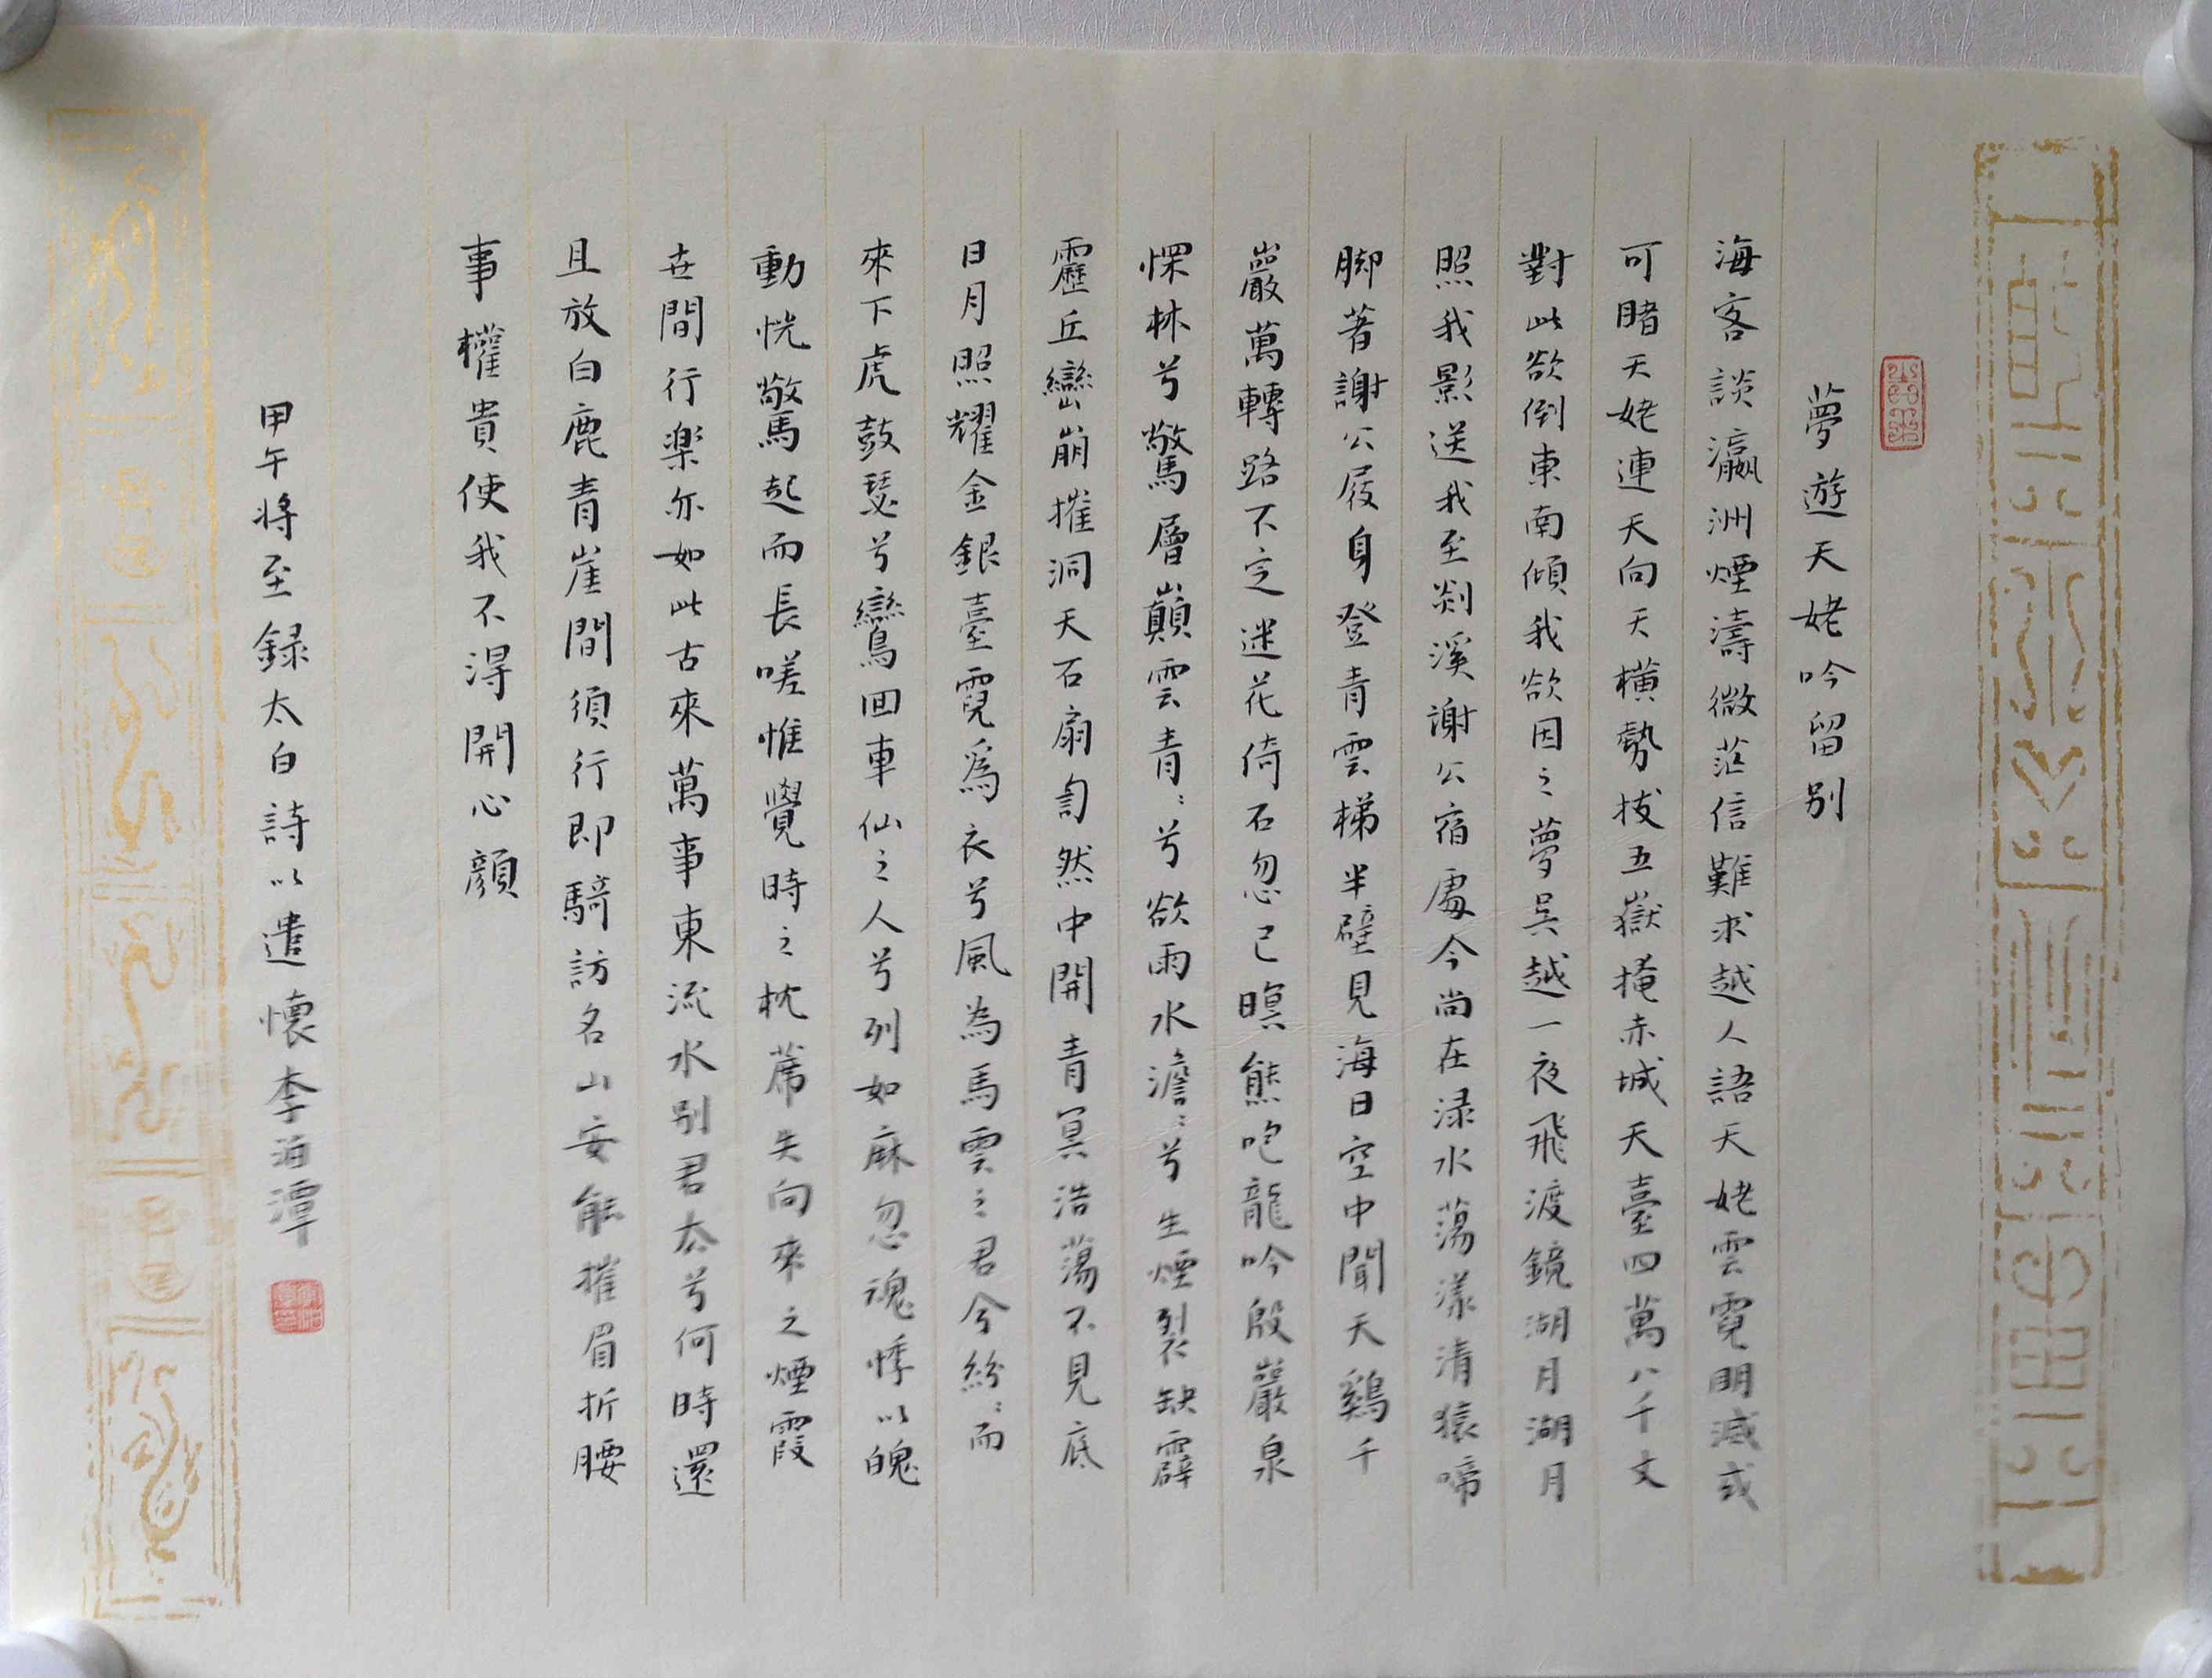 夢遊天姥吟留别
海客談瀛洲煙濤微茫信難求越人語天姥雲霓明滅或
可睹天姥連天向天橫勢拔五嶽掩赤城天臺四萬八千丈
對此欲倒東南傾我欲因之夢吳越一夜飛渡鏡湖月湖月
照我影送我至剡溪謝公宿處今尚在渌水蕩漾清猿啼
脚著謝公屐身登青雲梯半壁見海日空中聞天鷄千
巖萬轉路不定迷花倚石忽已暝熊咆龍吟殷巖泉
慄林兮驚層巔雲青〻兮欲雨水澹〻兮生煙裂缺霹
靂丘巒崩摧洞天石扇訇然中開青冥浩蕩不見底
日月照耀金銀臺霓爲衣兮風為馬雲之君兮紛〻而
來下虎鼓瑟兮鸞回車仙之人兮列如麻忽魂悸以魄
動恍驚起而長嗟惟覺時之枕席失向來之煙霞
世間行樂亦如此古來萬事東流水别君去兮何時還
且放白鹿青崖間須行即騎訪名山安能摧眉折腰
事權貴使我不得開心顔
甲午將至録太白詩以遣懷李海潭